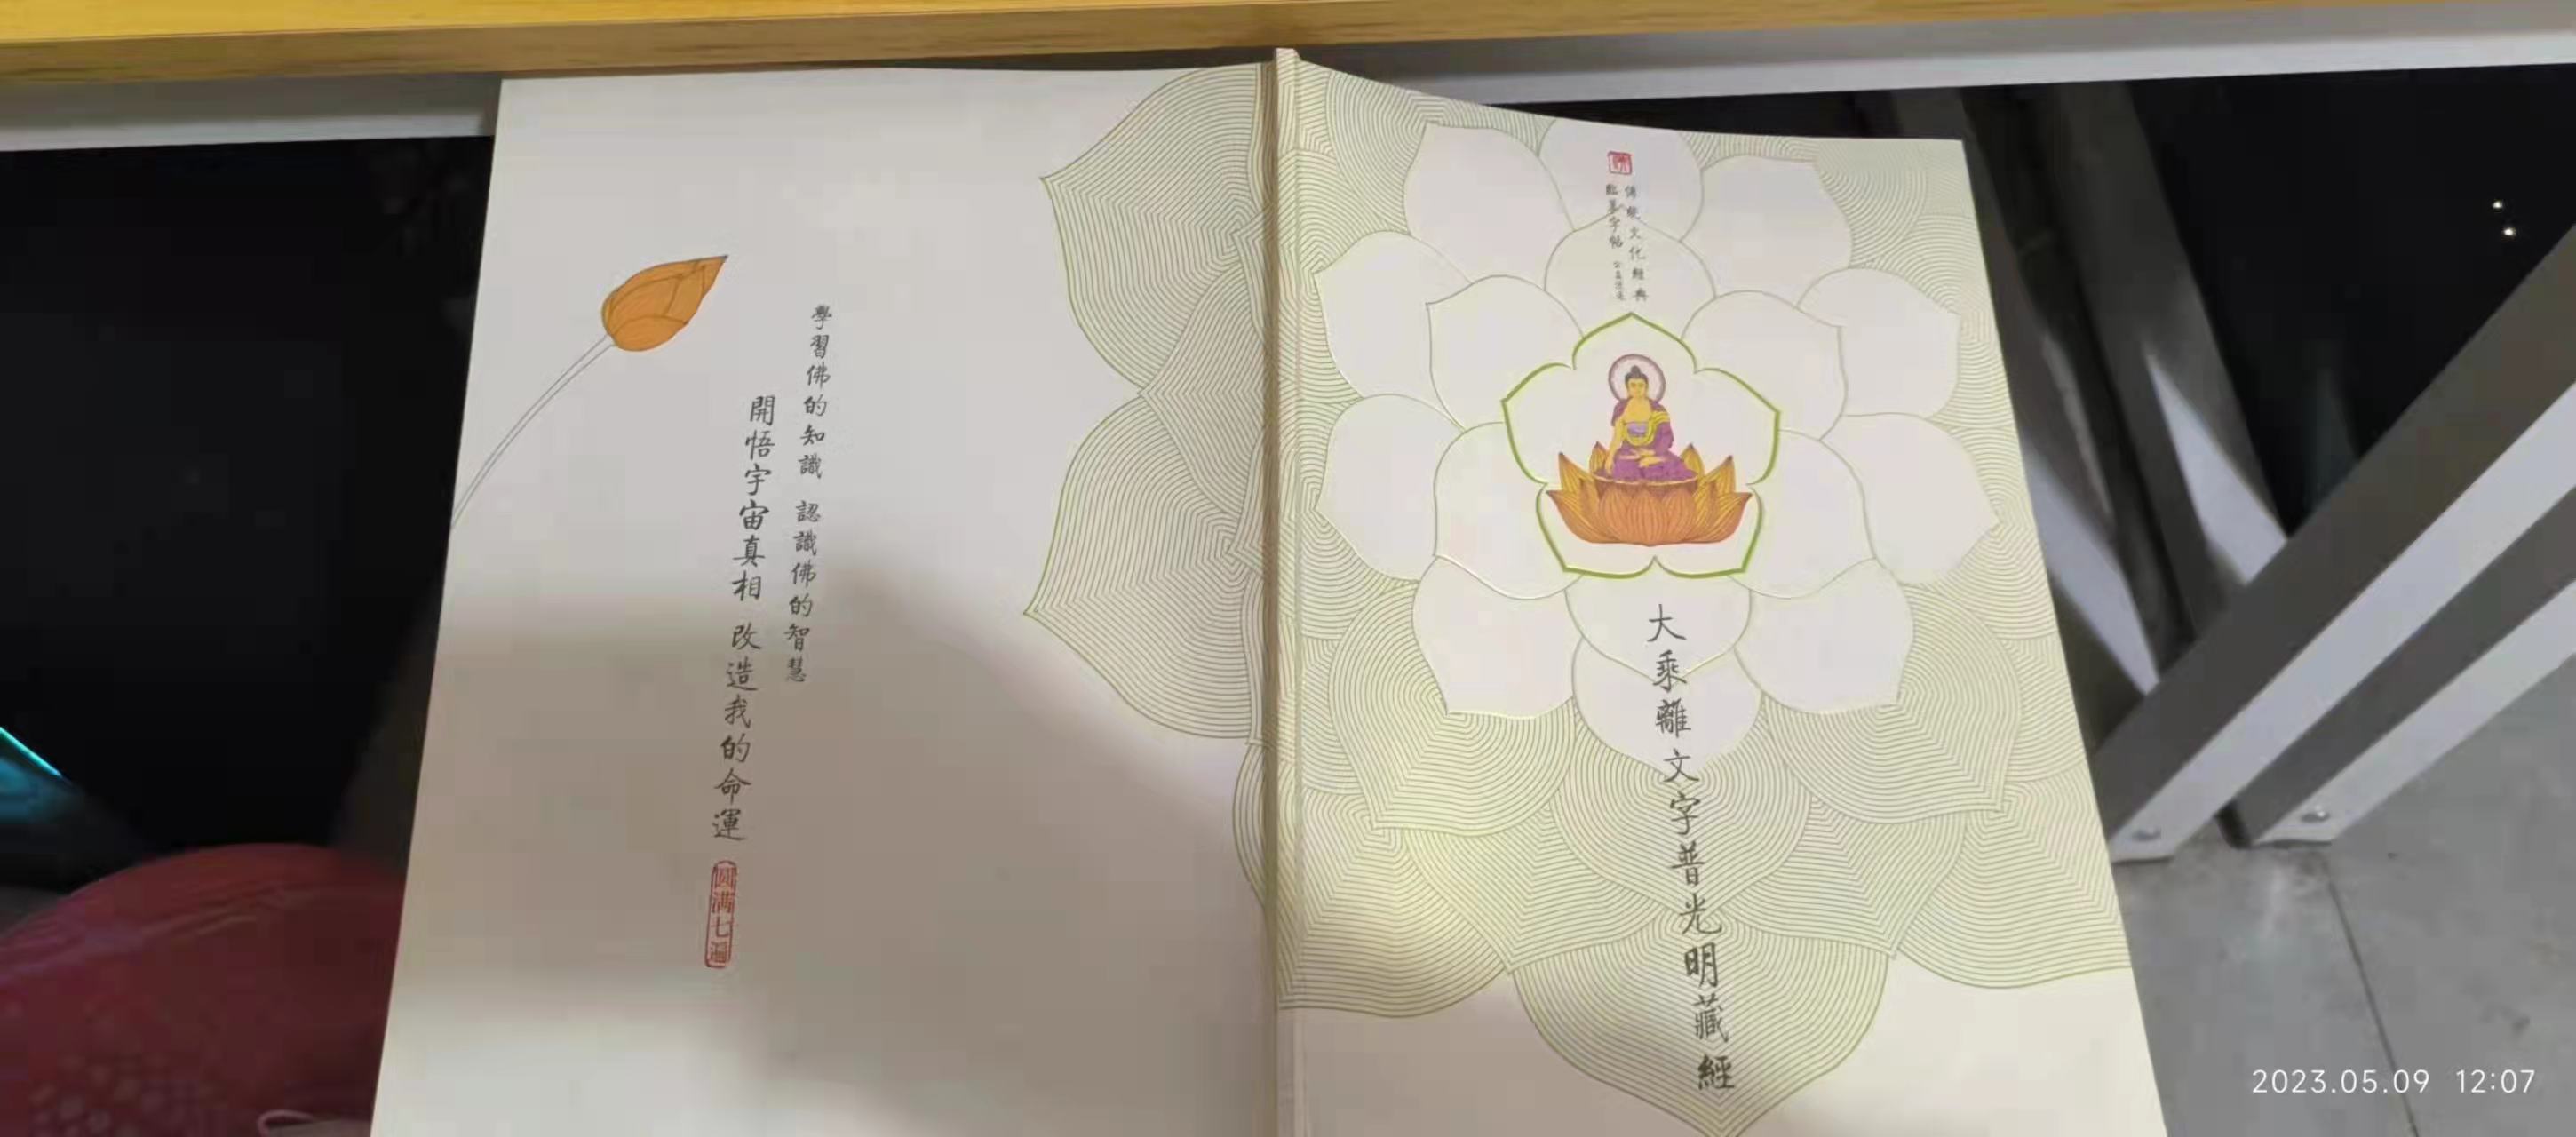 傳統文化經典
臨摹字帖
大乘離文字普光明藏經
學習佛的知識 認識佛的智慧
開悟宇宙真相 改造我的命運
圆满七遍
2023.05.09 12:07